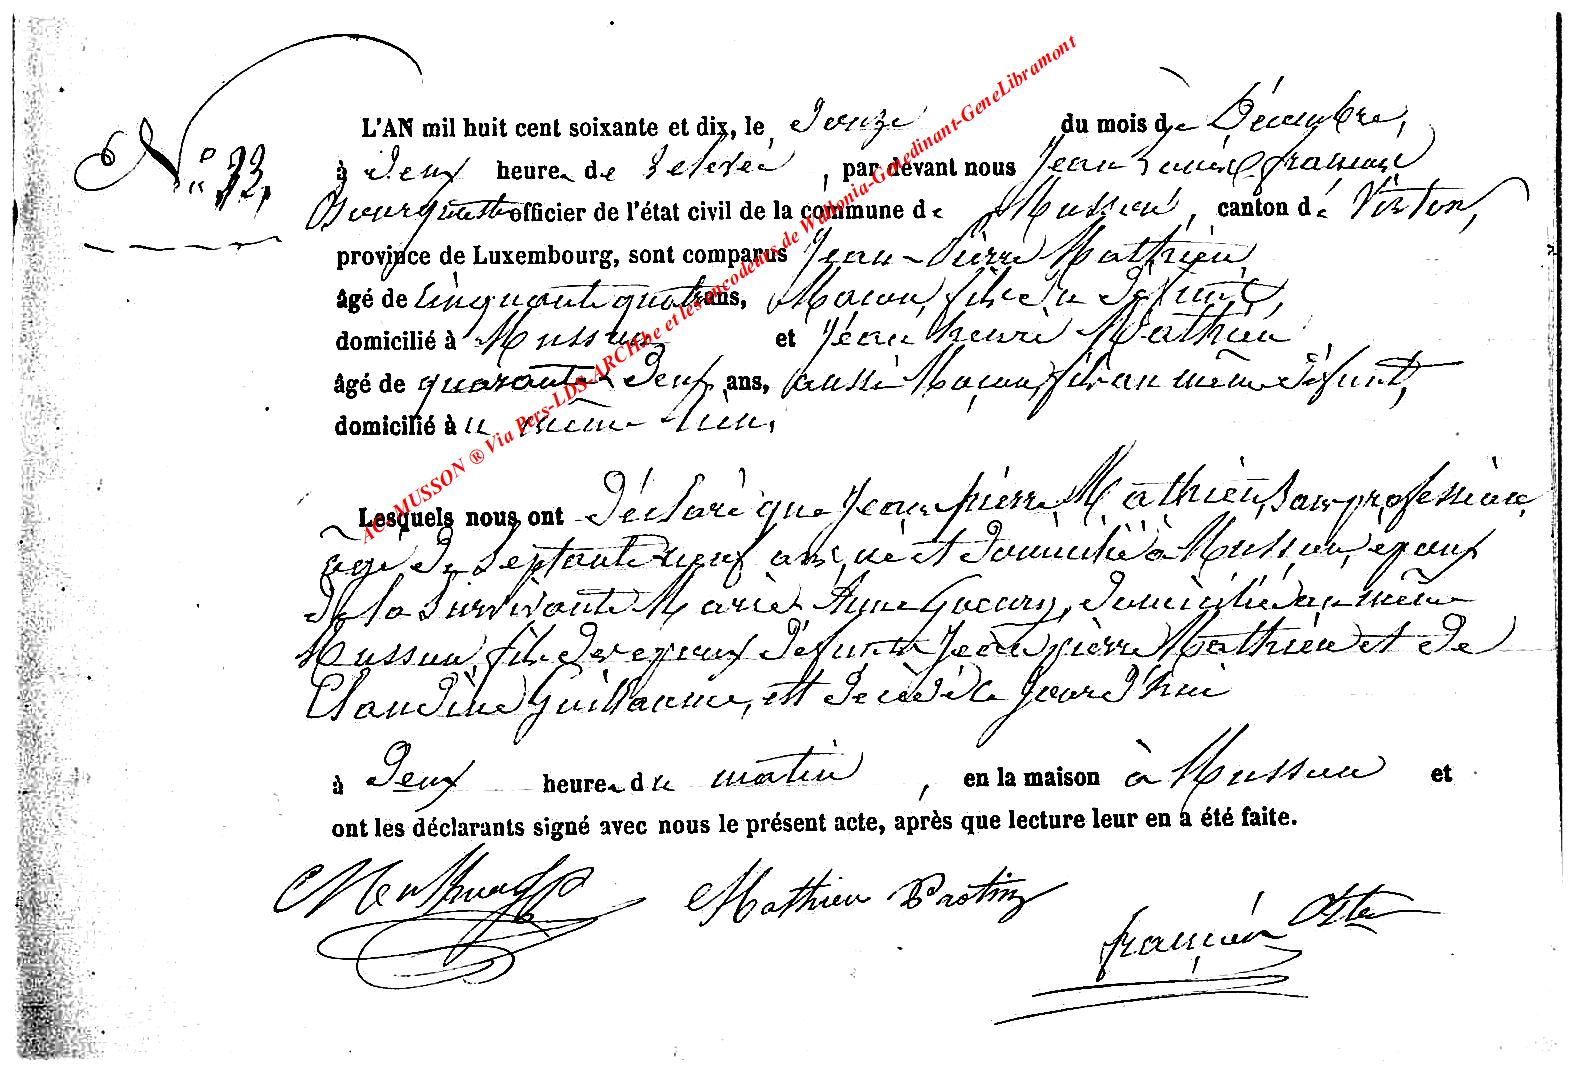 N° 33,
L'AN mil huit cent soixante et dix, le douze du mois de Décembre,
à deux heure de relevée, par devant nous Jean Louis françois
officier de l'état civil de la commune de Musson, canton de Virton,
province de Luxembourg, sont comparus Jean-Pierre Mathieu
âgé de cinquante quatre ans, Maçon, fils du défunt,
domicilié à Musson et Jean henri Mathieu
âgé de quarante deux ans, aussi Maçon, fils au même défunt,
domicilié au même lieu.
Lesquels nous ont déclaré que Jean pierre Mathieu, sans profession,
âgé de septante neuf ans, né et domicilié à Musson, époux
de la survivante Marie Anne Goeury, domiciliée au même
Musson, fils des époux défunts Jean pierre Mathieu et de
Claudine Guillaume, est décédé ce jourd'hui
à deux heure du matin, en la maison à Musson et
ont les déclarants signé avec nous le présent acte, après que lecture leur en a été faite.
Mathieu Protin
françois
AC MUSSON ® Via Pers-LDS-ARCH.be et les encodeurs de Wallonia-Genedinant-GeneLibramont